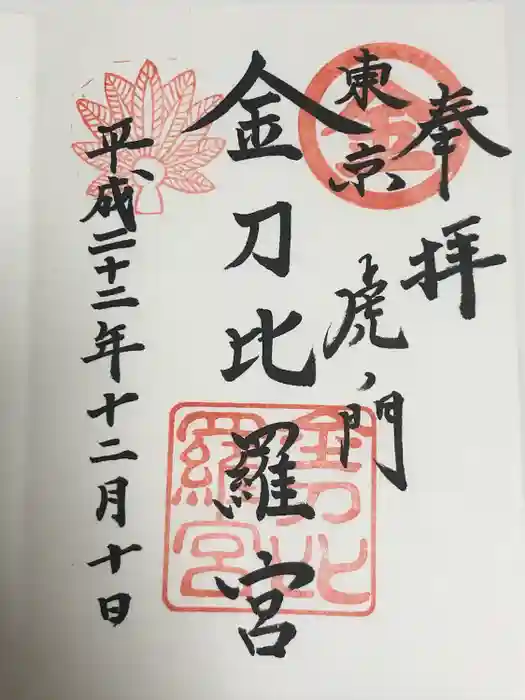 奉拝
東京
虎ノ門
金
金刀比羅宮
金刀比
羅宮
平成二十二年十二月十日